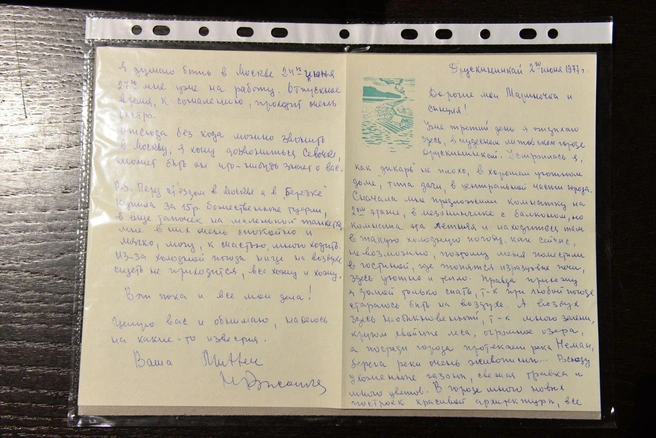 Я думаю быть в Москве 24го июня
27го мне уже на работу. Отпускное
время, к сожалению, проходит очень
быстро.
Отсюда без кода можно звонить
в Москву, я хочу дозвониться Севочке,
может быть он что-нибудь знает о вас.
P.S. Перед отъездом в Москве я в "Березке"
купила за 15р. божественные туфли,
в виде тапочек на маленькой танкетке,
мне в них очень спокойно и
мягко, могу, к счастью, много ходить.
Из-за холодной погоды нигде на воздухе
сидеть не приходится, все хожу и хожу.
Вот пока и все мои дела!
Целую вас и обнимаю, надеюсь
на какие-то известия.
Ваша
Друскининкай 2го июня 1977 г.
Дорогие мои Мариночка и
Уже третий день я отдыхаю
здесь, в чудесном литовском городе
Друскининкай. Устроилась я,
как "дикарь" не плохо, в хорошем уютном
доме, типа дачи, в центральной части города.
Сначала мне предложили комнатку на
2ом этаже, в мезонинчике с балконом, но
комната эта летняя и находиться там
в такую холодную погоду, как сейчас,
невозможно, поэтому меня поместили
в гостиной, где топится изразцовая печь,
здесь уютно и тепло. Правда прихожу
я домой только спать, т-к при любой погоде
стараюсь быть на воздухе. А воздух
здесь необыкновенный, т-к много зелени,
кругом хвойные леса, огромное озеро,
а посреди города протекает река Неман,
берега реки очень живописны... Всюду
ухоженные газоны, свежая травка и
много цветов. В городе много новых
построек красивой архитектуры, все